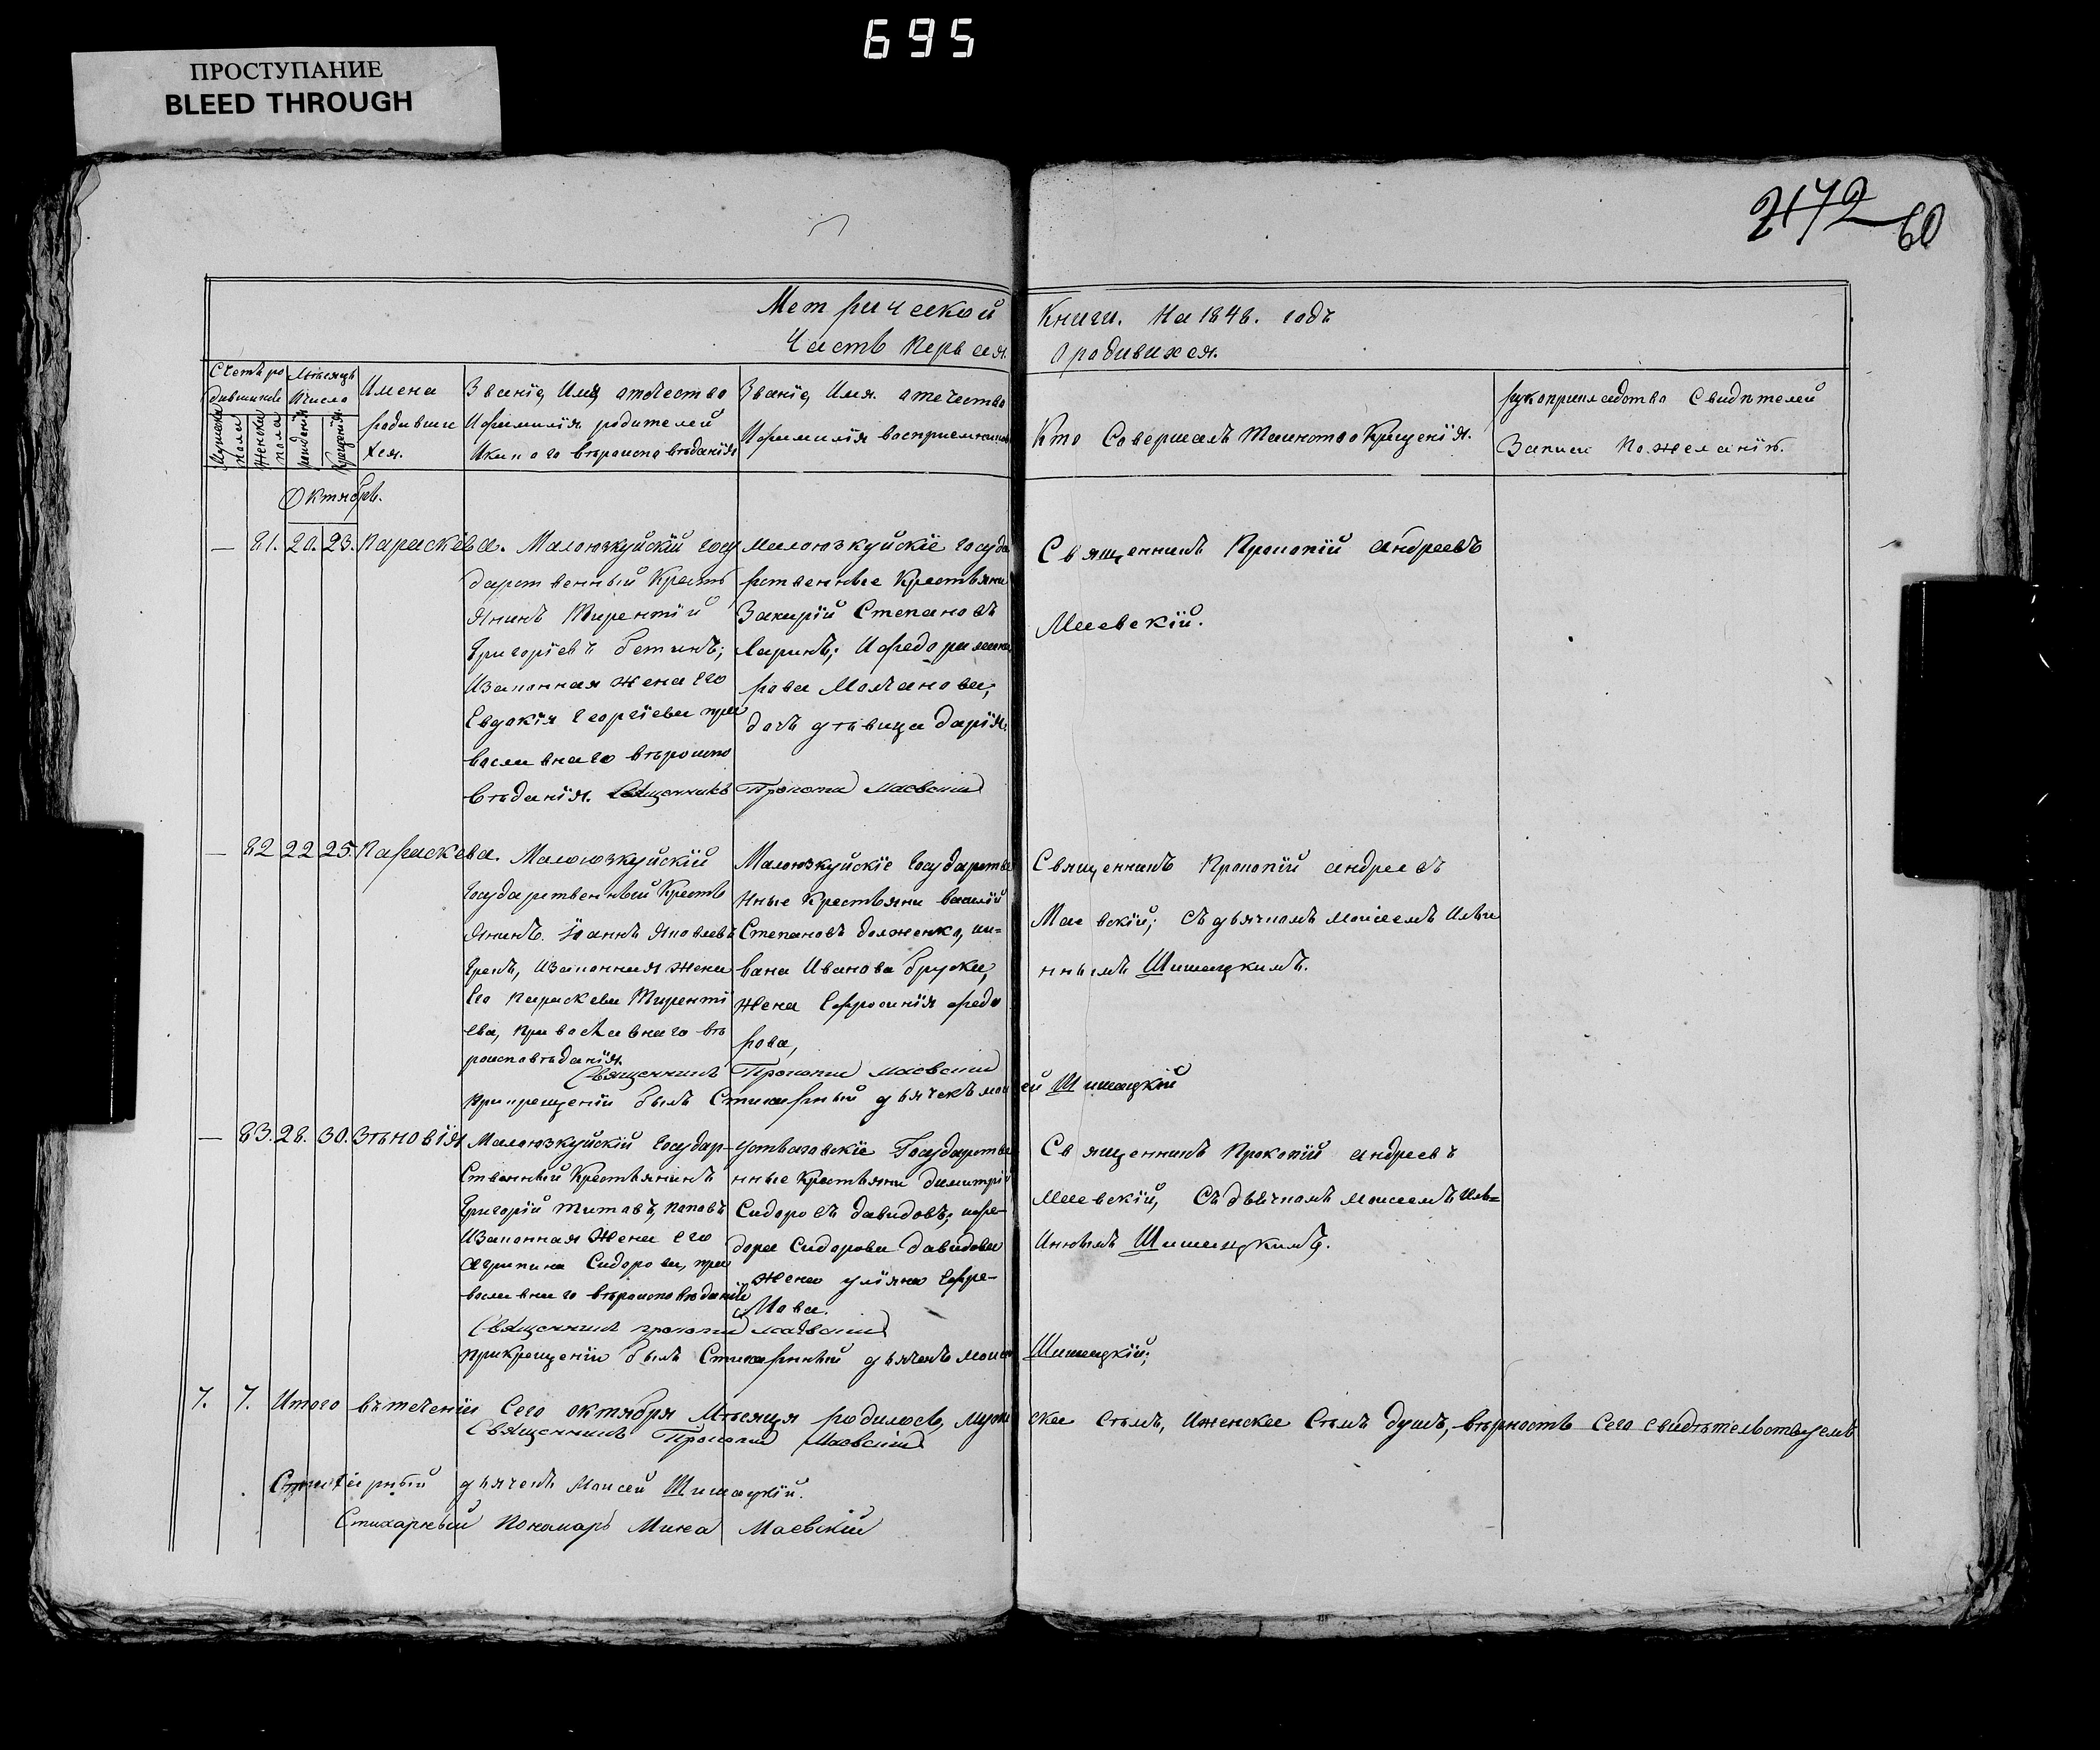 695
ПРОСТУПАНИЕ
BLEED THROUGH
2172 60
Метрической Книги. На 1848. годъ
Часть Первая. О родившихся.
Счетъ ро
дившихся
Мѣсяцъ
Ичисло
Мужеска
пола
Женска
пола
рожденія
Крещенія
Имена
родивши
хся.
Званіе, Имя, отчество
Ифамилія родителей
Икакого вѣроисповѣданія
Званіе, Имя. отечество
Ифамилія восприемниковъ
Кто Совершалъ таинство Крещенія.
рукоприкладство Свидѣтелей
Записи По желанію.
Октябрь.
— 81. 20. 23. Параскева.
Малоюзкуйскій госу
дарственный Кресть
янинъ Тирентій
Григоріевъ бетинъ;
Изаконная жена его
Евдокія Георгіева пра
вославнаго вѣроиспо
вѣданія. Священникъ Прокопий Маевский
Малоюзкуйскіе госуда
рственные Крестьяни
Захарій Степановъ
Ларинъ; Ифедора мака
рова Молчанова,
дочь дѣвица дарія.
Священникъ Прокопій андреевъ
Маевскій.
— 82 22 25. Параскева.
Малоюзкуйскій
Государственный Кресть
янинъ. Іоаннъ Яковлевъ
Изаконная жена
Его Параскева Тиренті
ева, православнаго вѣ
роисповѣданія.
Священникъ Прокопий Маевский
Малоюзкуйскіе Государстве
нные Крестьяни василій
Степановъ долженко, ии=
вана Иванова бруска,
жена Ефросинія федо
рова,
Священникъ Прокопій андреевъ
Маевскій; съ дьячкомъ Моисеемъ Ильи
ннымъ Шишацкимъ.
Прикрещеніи былъ Стихарный дьячекъ Моисей Шишацкій
— 83. 28. 30. Зѣновія
Малоюзкуйскій Государ-
Ственный Крестьянинъ
Григорій Титовъ, Поповъ
Изаконная Жена его
Агрипина Сидорова, пра
вославнаго вѣроисповѣданій
Священникъ прокопий маевский
Государстве
нные Крестьяни димитрій
Сидоровъ давидовъ; ифе-
дора Сидорова давидова
жена уліяна Ефре-
Мова.
Священникъ Прокопій андреевъ
Маевскій, Съ дьячкомъ Моисеемъ Иль=
Иннымъ Шишацкимъ.
Прикрещеніи былъ Стихарный дьячекъ Моисей Шишацкій;
7. 7. Итого вътеченіи Сего октября Мѣсяца родилось, мужеское Семъ, Иженскее Семъ душъ, вѣрность Сего свидѣтельствуемъ
Священникъ Прокопий Маевский
Стихарный дьячекъ Моисей Шишацкій.
Стихарный Пономарь Мина Маевскій